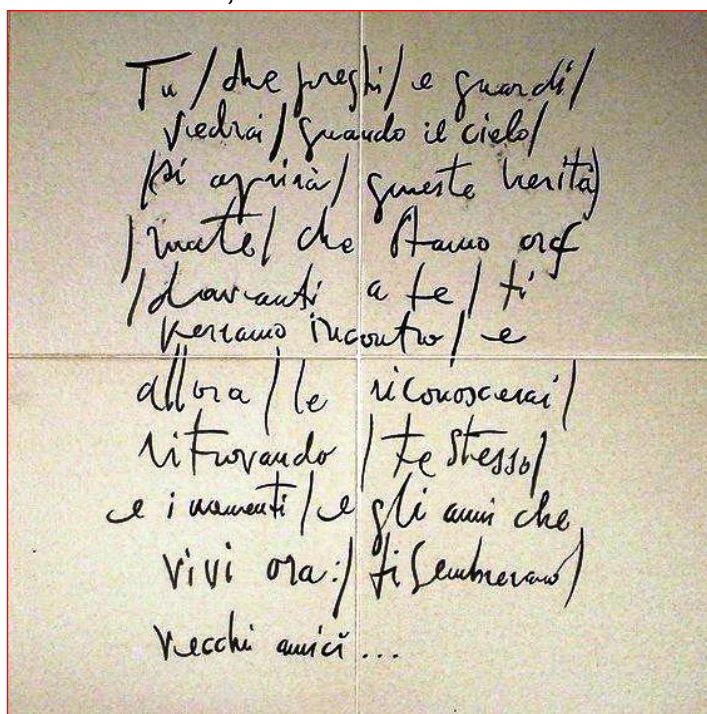 Tu / che preghi / e guardi /
vedrai / quando il cielo /
/ si aprirà / queste verità /
/ mute / che stanno
/ davanti a te / ti
verranno incontro / e
allora / le riconoscerai /
ritrovando / te stesso /
e i momenti / e gli anni che
vivi ora: / ti sembreranno /
vecchi amici ...